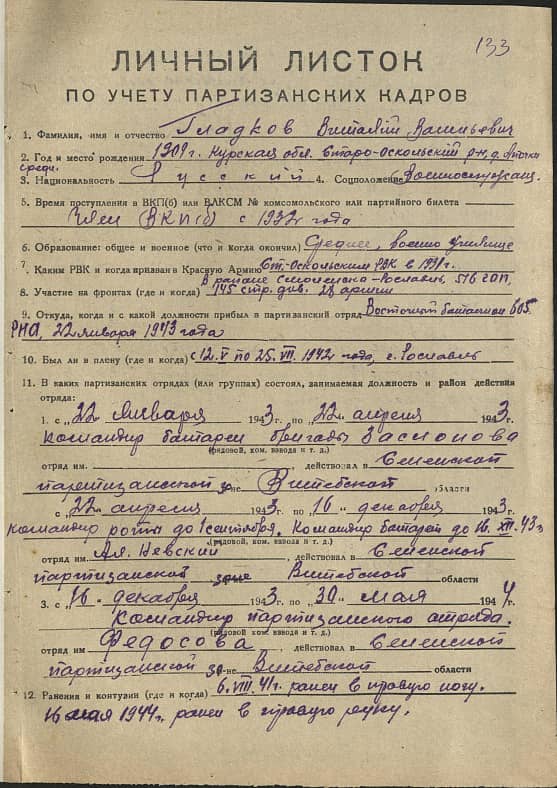 133
ЛИЧНЫЙ ЛИСТОК
ПО УЧЕТУ ПАРТИЗАНСКИХ КАДРОВ
1. Фамилия, имя и отчество Гладков Виталий Васильевич
2. Год и место рождения 1909 г. Курская обл. Старо-Оскольский р-н, д.
3. Национальность Русский 4. Соцположение Военнослужащ.
5. Время поступления в ВКП(б) или ВЛКСМ № комсомольского или партийного билета
Член ВКП(б) с 1932 года
6. Образование: общее и военное (что и когда окончил) Среднее, военно училище
7. Каким РВК и когда призван в Красную Армию Ст. Оскольским РВК в 1931 г.
В районе Смоленско-Рославль, 516 ГАП,
8. Участие на фронтах (где и когда) 145 стр. див. 28 армии
9. Откуда, когда и с какой должности прибыл в партизанский отряд Восточный баталион 605
РНА, 22 января 1943 года
10. Был ли в плену (где и когда) с 12.V по 25.VII. 1942 года, г. Рославль
11. В каких партизанских отрядах (или группах) состоял, занимаемая должность и район действия
отряда:
1. с „22“ Января 1943 г. по „22“ апреля 1943 г.
командир батареи бригады
(рядовой, ком. взвода и т. д.)
отряд им. действовал в Сененской
партизанской зоне Витебской области
с „22“ апреля 1943 г. по „16“ декабря 1943 г.
командир роты до 1 сентября. Командир батареи до 16.XII.43 г.
(рядовой, ком. взвода и т. д.)
отряд им. Ал. Невский, действовал в Сененской
партизанской зоне Витебской области
3. с „16“ декабря 1943 г. по „30“ мая 1944 г.
Командир партизанского отряда.
(рядовой ком. взвода и т. д.)
отряд им Федосова, действовал в Сененской
партизанской зо-не Витебской области
12. Ранения и контузии (где и когда) 6.VIII.41 г. ранен в правую ногу.
16 мая 1944 г. ранен в правую руку.